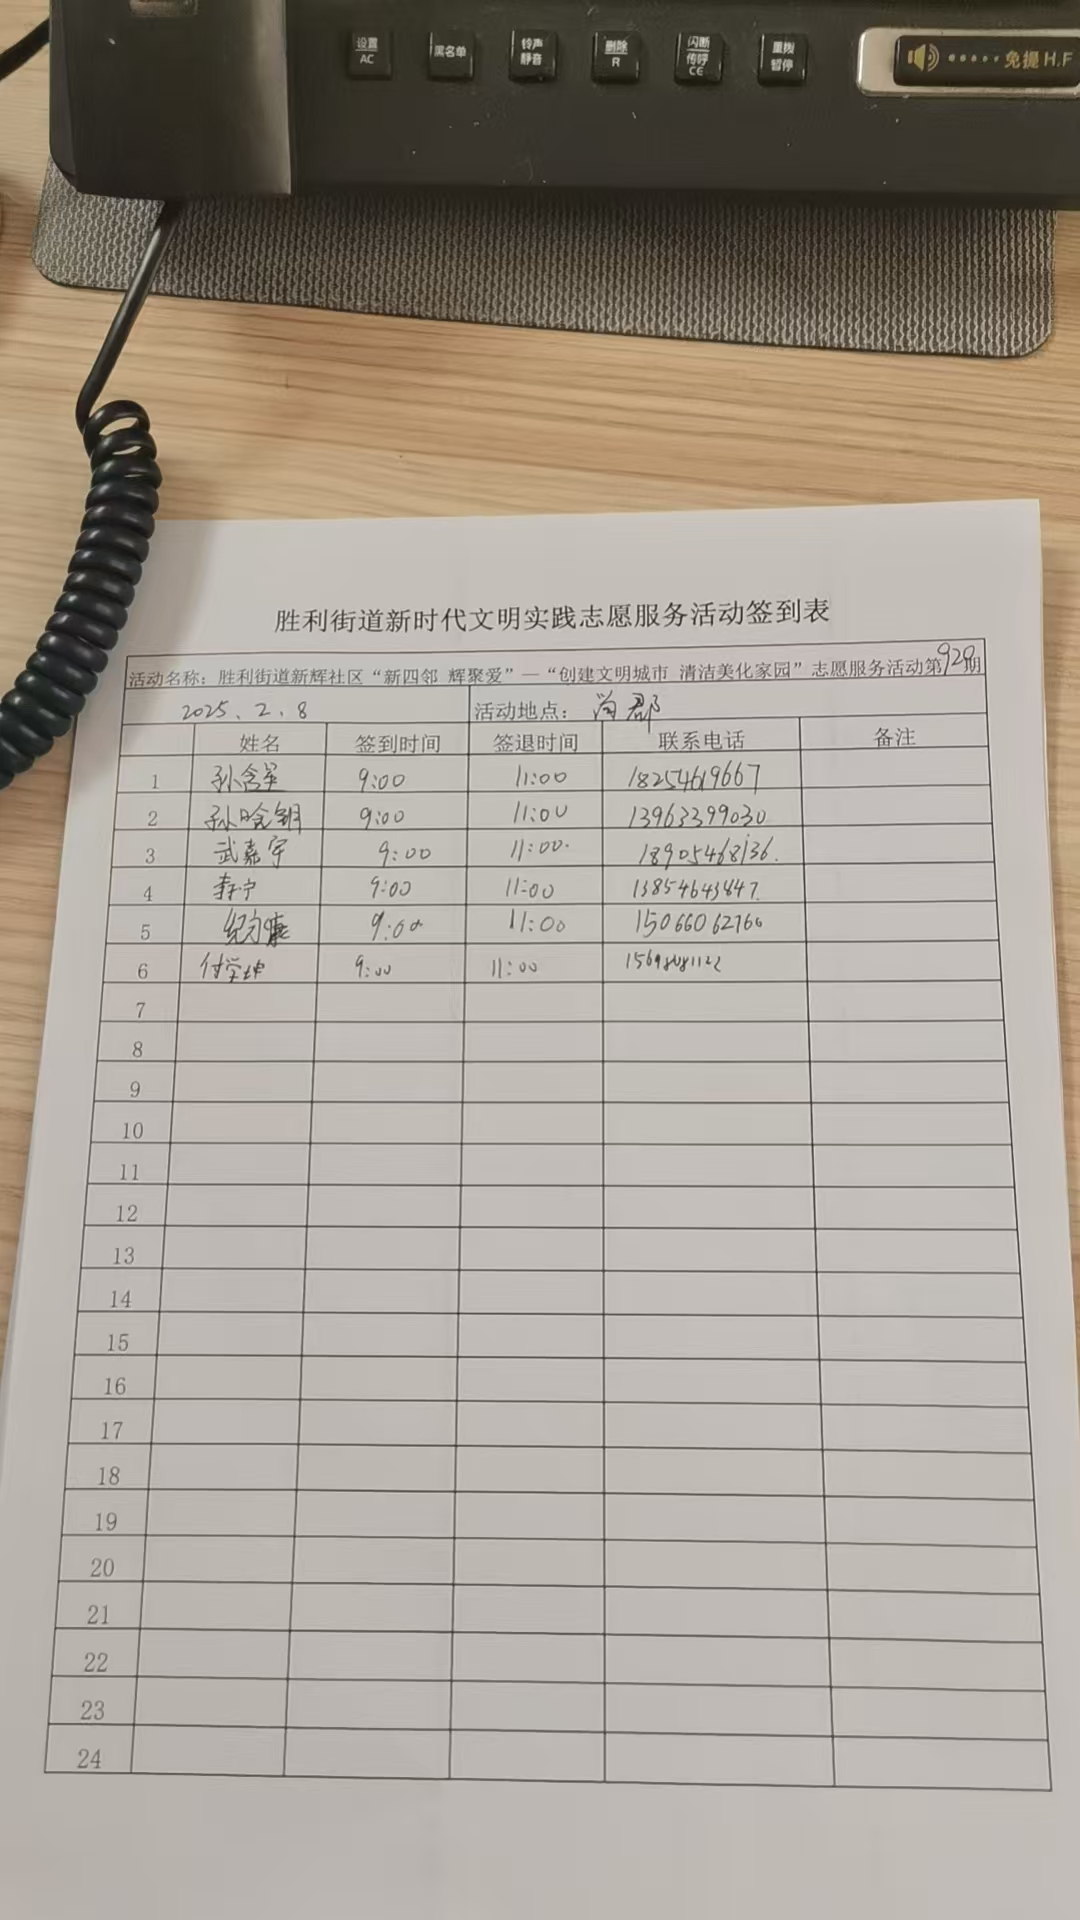 设置 AC
黑名单
铃声 静音
删除 R
闪断 传呼 CE
重拨 暂停
免提 H.F
胜利街道新时代文明实践志愿服务活动签到表
活动名称：胜利街道新辉社区“新四邻 辉聚爱”—“创建文明城市 清洁美化家园”志愿服务活动第929期
2025.2.8 活动地点：尚郡
姓名 签到时间 签退时间 联系电话 备注
1 孙含笙 9:00 11:00 18254619667
2 孙晗钥 9:00 11:00 13963399030
3 武嘉宇 9:00 11:00. 18905468136.
4 李宁 9:00 11:00 13854643847.
5 9:00 11:00 15066062766
6 付学坤 9:00 11:00
7
8
9
10
11
12
13
14
15
16
17
18
19
20
21
22
23
24